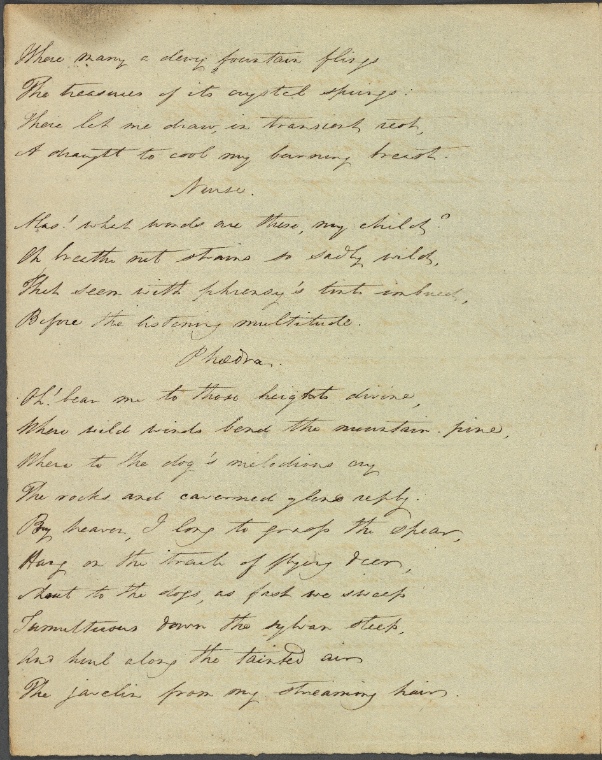 Where many a dewy fountain flings
The treasures of its crystal springs:
There let me draw, in transient rest,
A draught to cool my burning breast.
Nurse.
Alas! what words are these, my child?
Oh breathe not strains so sadly wild,
That seem with phrensy's tints imbued,
Before the listening multitude.
Phædra.
Oh! bear me to those heights divine,
Where wild winds bend the mountain pine,
Where to the dog's melodious cry
The rocks and caverned glens reply.
By heaven, I long to grasp the spear,
Hang on the track of flying deer,
Shout to the dogs, as fast we sweep
Tumultuous down the sylvan steep,
And hurl along the tainted air
The javelin from my streaming hair.